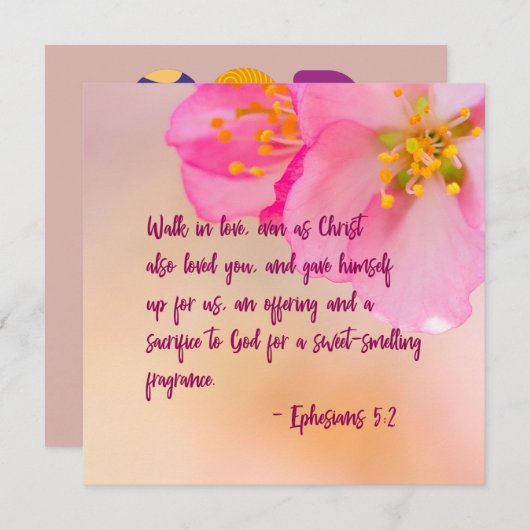 Walk in love, even as Christ
also loved you, and gave himself
up for us, an offering and a
sacrifice to God for a sweet-smelling
fragrance.
- Ephesians 5:2